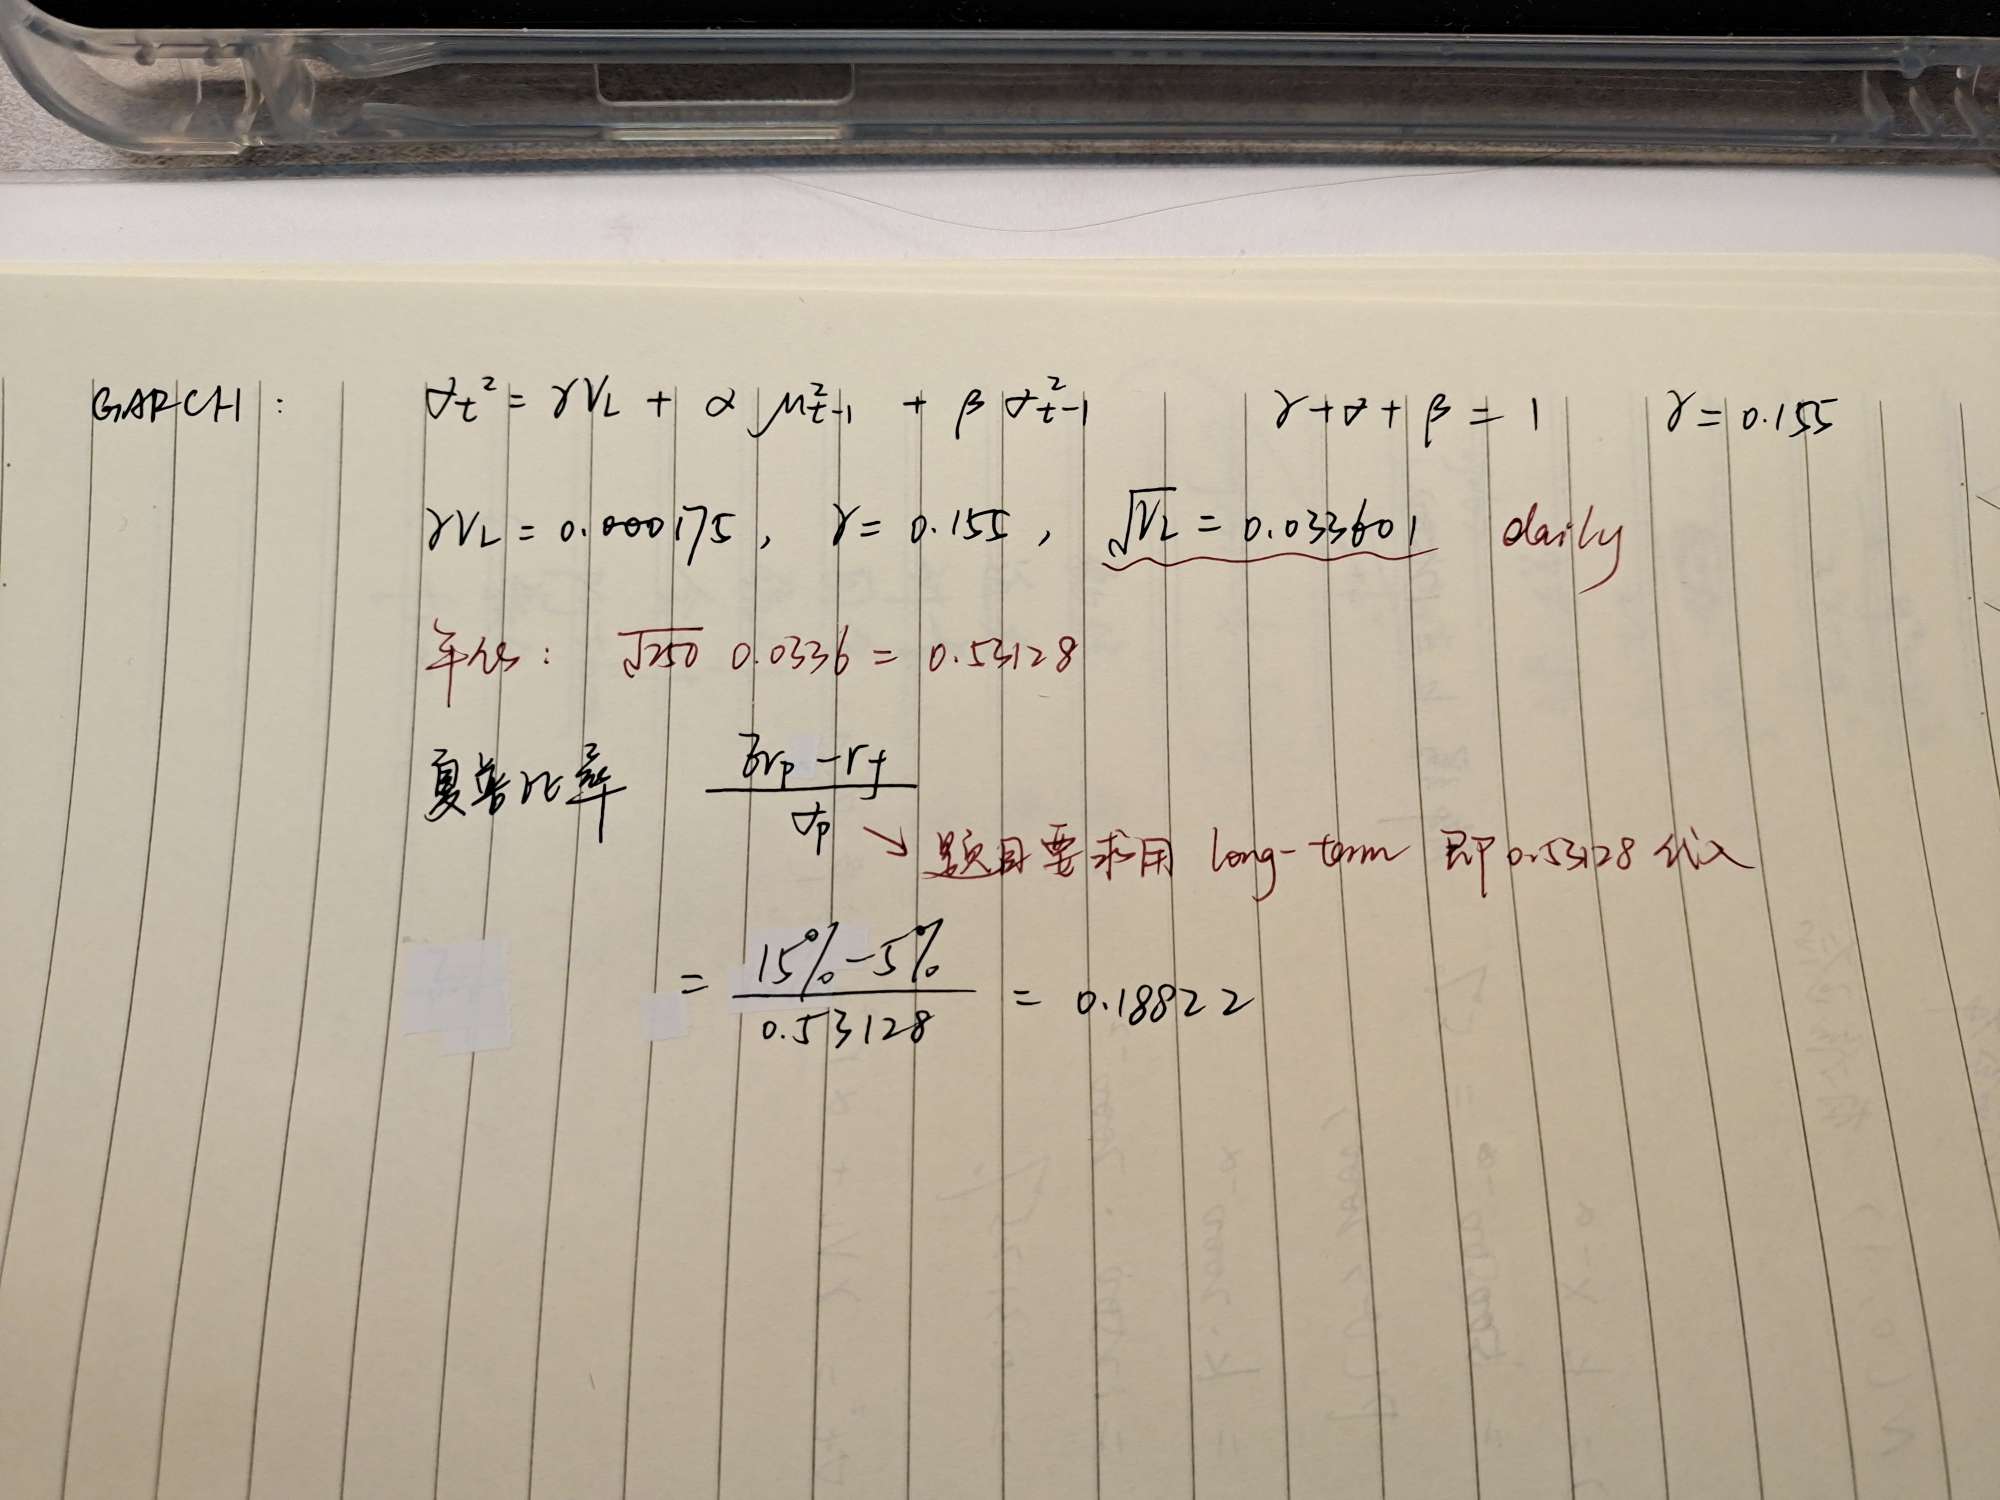 GARCH: σt² = γVL + α μ²t-1 + β σ²t-1 γ+α+β=1 γ=0.155
γVL = 0.000175, γ=0.155, √VL = 0.033601 daily
年化: √250 0.0336 = 0.53128
夏普比率 rp-rf / σp
→ 题目要求用 long-term 即0.53128代入
= 15%-5% / 0.53128 = 0.18822